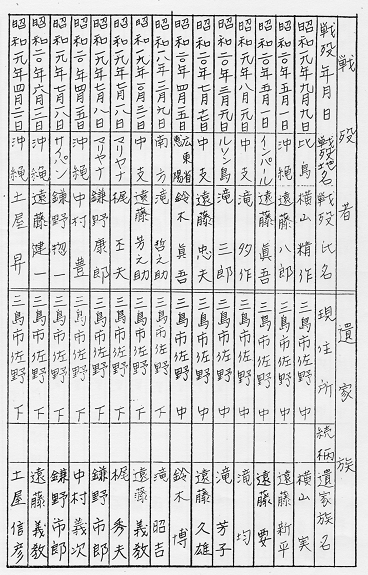 戦没者 遺家族
戦没年月日 戦没地名 戦没氏名 現住所 続柄 遺家族名
昭和元年九月九日 比島 横山精作 三島市佐野 中 横山実
昭和二〇年五月一〇日 沖縄 遠藤八郎 三島市佐野 中 遠藤新平
昭和二〇年五月一日 インパール 遠藤眞吾 三島市佐野 中 遠藤要
昭和元年八月元日 中支 滝多作 三島市佐野 中 滝均
昭和二〇年三月元日 ルソン島 滝三郎 三島市佐野 中 滝芳子
昭和二〇年七月七日 中支 遠藤忠夫 三島市佐野 中 遠藤久雄
昭和二〇年四月五日 広東省恵陽 鈴木眞吾 三島市佐野 中 鈴木博
昭和二八年三月元日 南方 滝哲之助 三島市佐野 下 滝昭吉
昭和九年〇月三日 中支 遠藤芳之助 三島市佐野 下 遠藤義教
昭和元年七月八日 マリヤナ 梶丕夫 三島市佐野 下 梶秀夫
昭和元年七月八日 マリヤナ 鎌野康郎 三島市佐野 下 鎌野市郎
昭和二〇年四月五日 沖縄 中村豊 三島市佐野 下 中村義次
昭和元年七月八日 サイパン 鎌野惣一 三島市佐野 下 鎌野市郎
昭和二〇年六月二日 沖縄 遠藤健一 三島市佐野 下 遠藤義教
昭和元年四月二日 沖縄 土屋昇 三島市佐野 下 土屋信彦